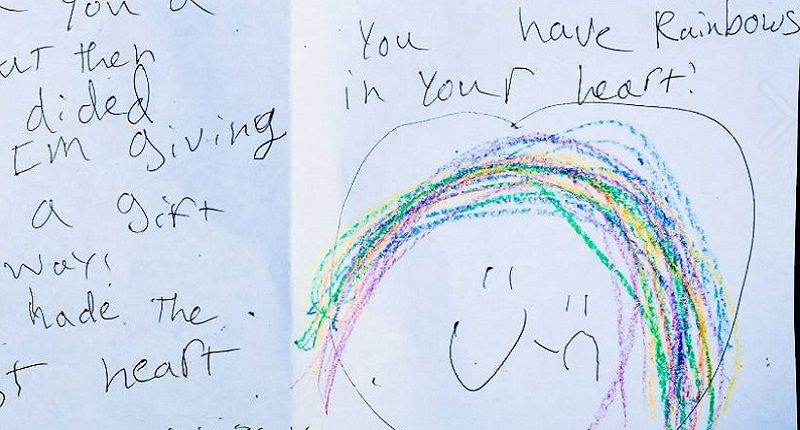 You a
ut then
dided
I'm giving
a gift
way!
hade The
st heart
You have Rainbows
in Your heart!